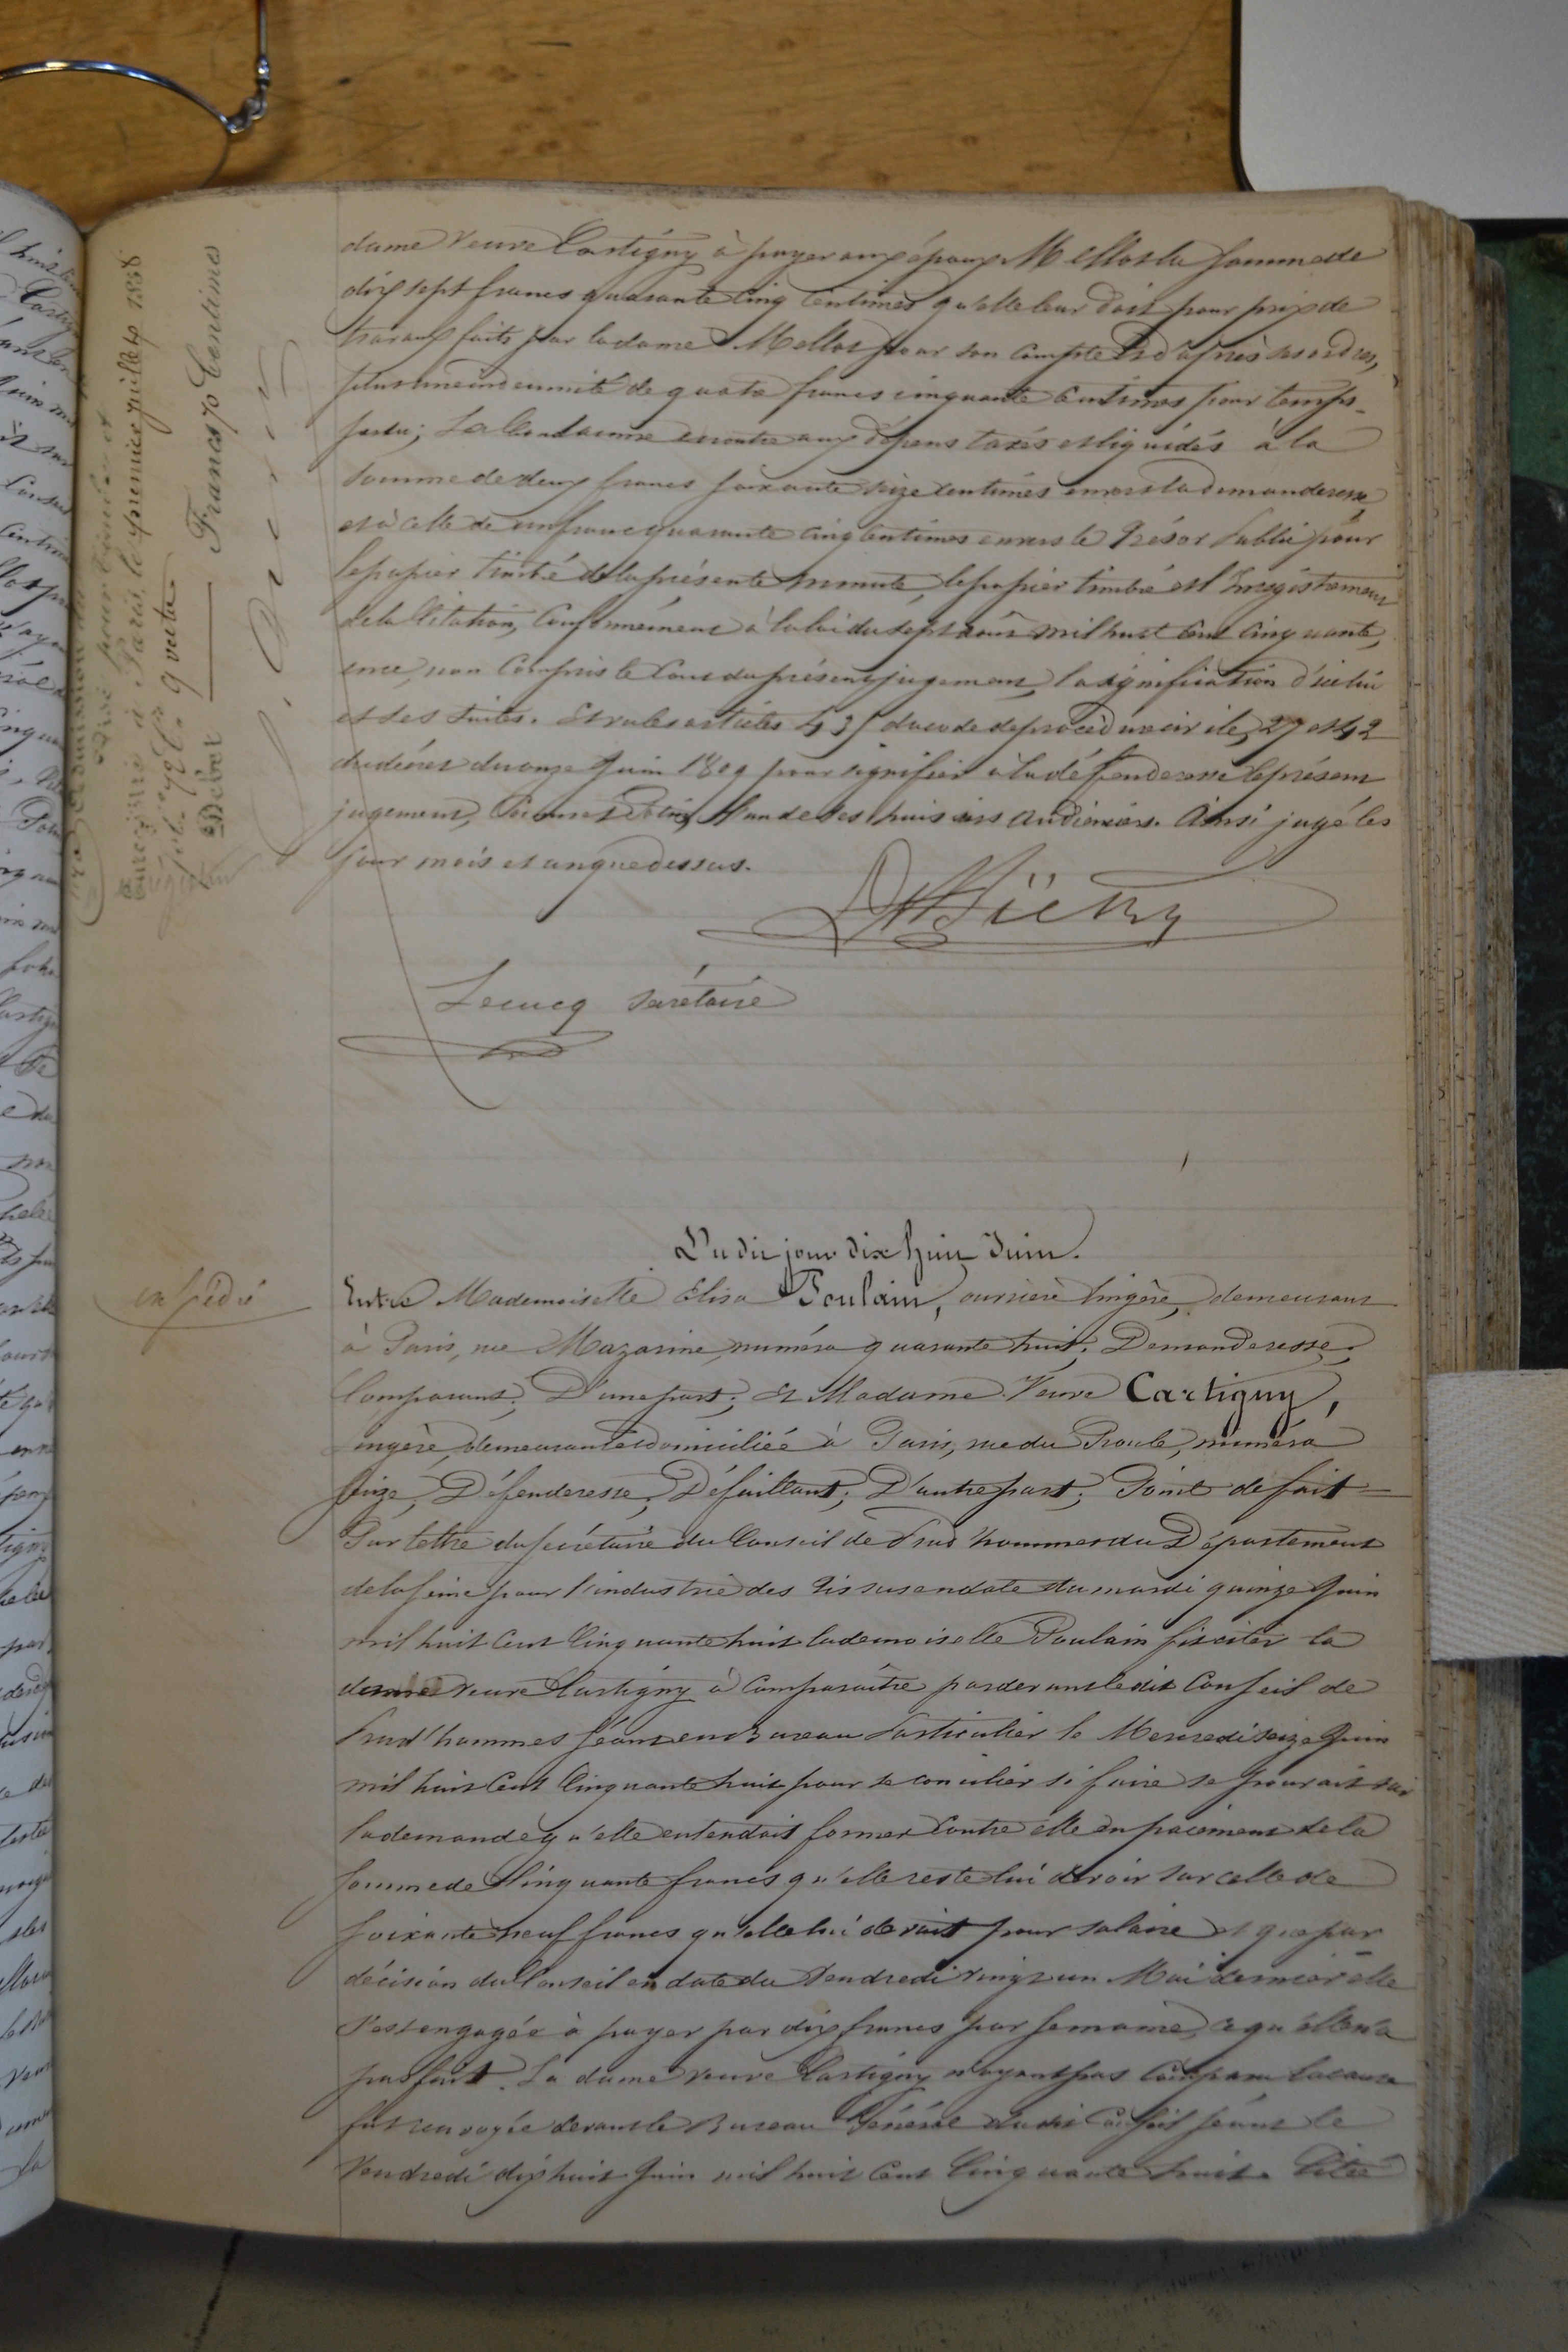 dame Veuve Cartigny à payer aux époux Mellot la somme de
dix sept francs quarante cinq centimes qu'elle leur doit pour prix de
travaux faits par la dame Mellot pour son compte et d'après ses ordres,
plus une indemnité de quatre francs cinquante centimes pour temps
perdu; La Condamne en outre aux dépens taxés et liquidés à la
somme de deux francs soixante seize centimes envers la demanderesse,
et à celle de un franc quarante cinq centimes envers le Trésor Public pour
le papier timbré de la présente minute, le papier timbré et l'Enregistrement
de la Citation, Conformément à la loi du sept août mil huit cent cinquante,
ence, non compris le Cout du présent jugement, la signification d'icelui
et ses suites. Et vu les articles 435 du code de procédure civile, 27 et 42
du décret du onze Juin 1809 pour signifier à la défenderesse le présent
jugement, l'un de ses huissiers audienciers. Ainsi jugé les
jour mois et an que dessus.
Lecucq Secrétaire
Enregistré à Paris, le premier juillet 1858
Débet Francs 70 Centimes
Du dit jour dix huit Juin.
expédié
Entre Mademoiselle Elisa Poulain, ouvrière lingère, demeurant
à Paris, rue Mazarine, numéro quarante huit; Demanderesse;
Comparant; D'une part; Et Madame Veuve Cartigny,
lingère, demeurant et domiciliée à Paris, rue du Roule, numéro
seize, Défenderesse; Défaillant; D'autre part; Point de fait
Par lettre du secrétaire du Conseil de Prud'hommes du Département
de la Seine pour l'industrie des Tissus en date du mardi quinze Juin
mil huit Cent Cinquante huit la demoiselle Poulain fit citer la
dame veuve Cartigny à Comparaître par devant le dit Conseil de
Prud'hommes séant en Bureau Particulier le Mercredi seize Juin
mil huit Cent Cinquante huit pour se concilier si faire se pouvait sur
la demande qu'elle entendait former contre elle en paiement de la
somme de Cinquante francs qu'elle reste lui devoir sur celle de
soixante neuf francs qu'elle lui devait pour salaire et que par
décision du Conseil en date du Vendredi vingt un Mai dernier elle
s'est engagée à payer par dix francs par semaine, ce qu'elle n'a
pas fait. La dame veuve Cartigny n'ayant pas comparu la cause
fut renvoyée devant le Bureau Général du dit Conseil séant le
Vendredi dix huit Juin mil huit Cent Cinquante huit. Citée